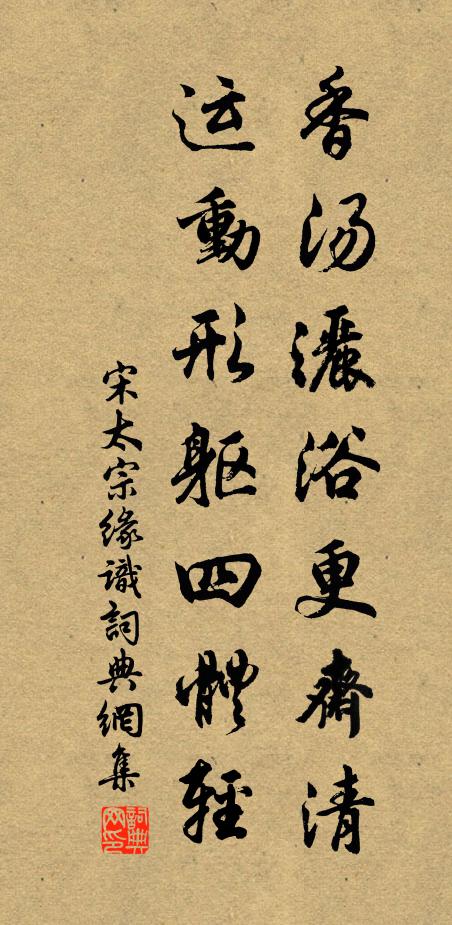 香汤灑浴更齋清
运動形躯四體輕
宋太宗緣識詞典網集
詞典网印